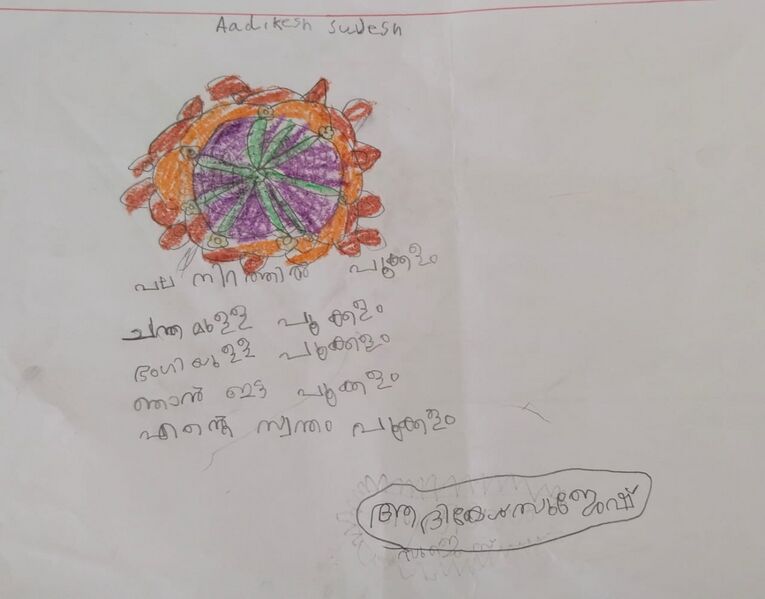 Aadikesh suvesh
പല നിറത്തിൽ പൂക്കളം
ചന്തമുള്ള പൂക്കളം
ഭംഗിയുള്ള പൂക്കളം
ഞാൻ ഇട്ട പൂക്കളം
എന്റെ സ്വന്തം പൂക്കളം